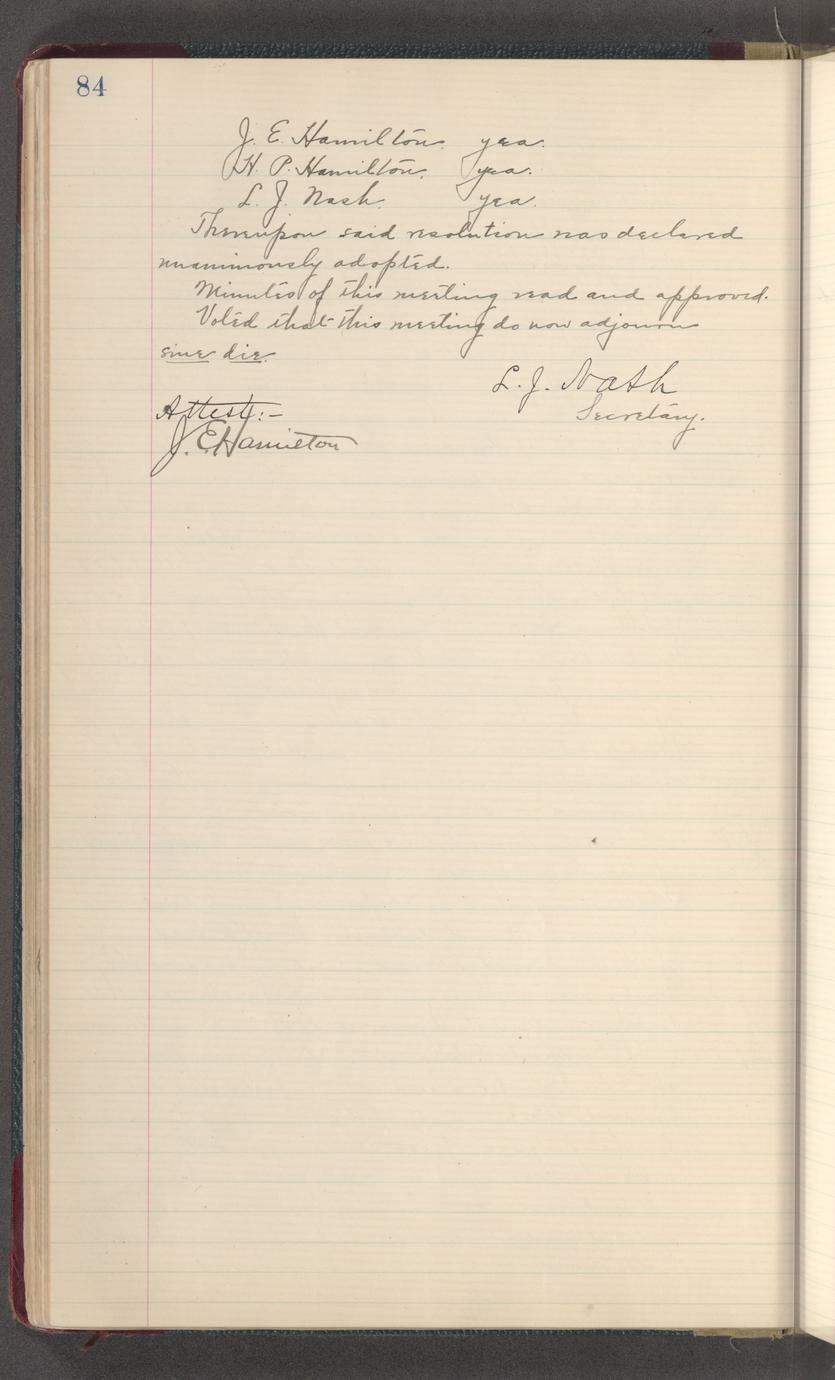 84
J. E. Hamilton. yea.
H. P. Hamilton. yea.
L. J. Nash. yea.
Thereupon said resolution was declared
unanimously adopted.
Minutes of this meeting read and approved.
Voted that this meeting do now adjourn
sine die.
L. J. Nash
Secretary.
Attest:-
J. E. Hamilton